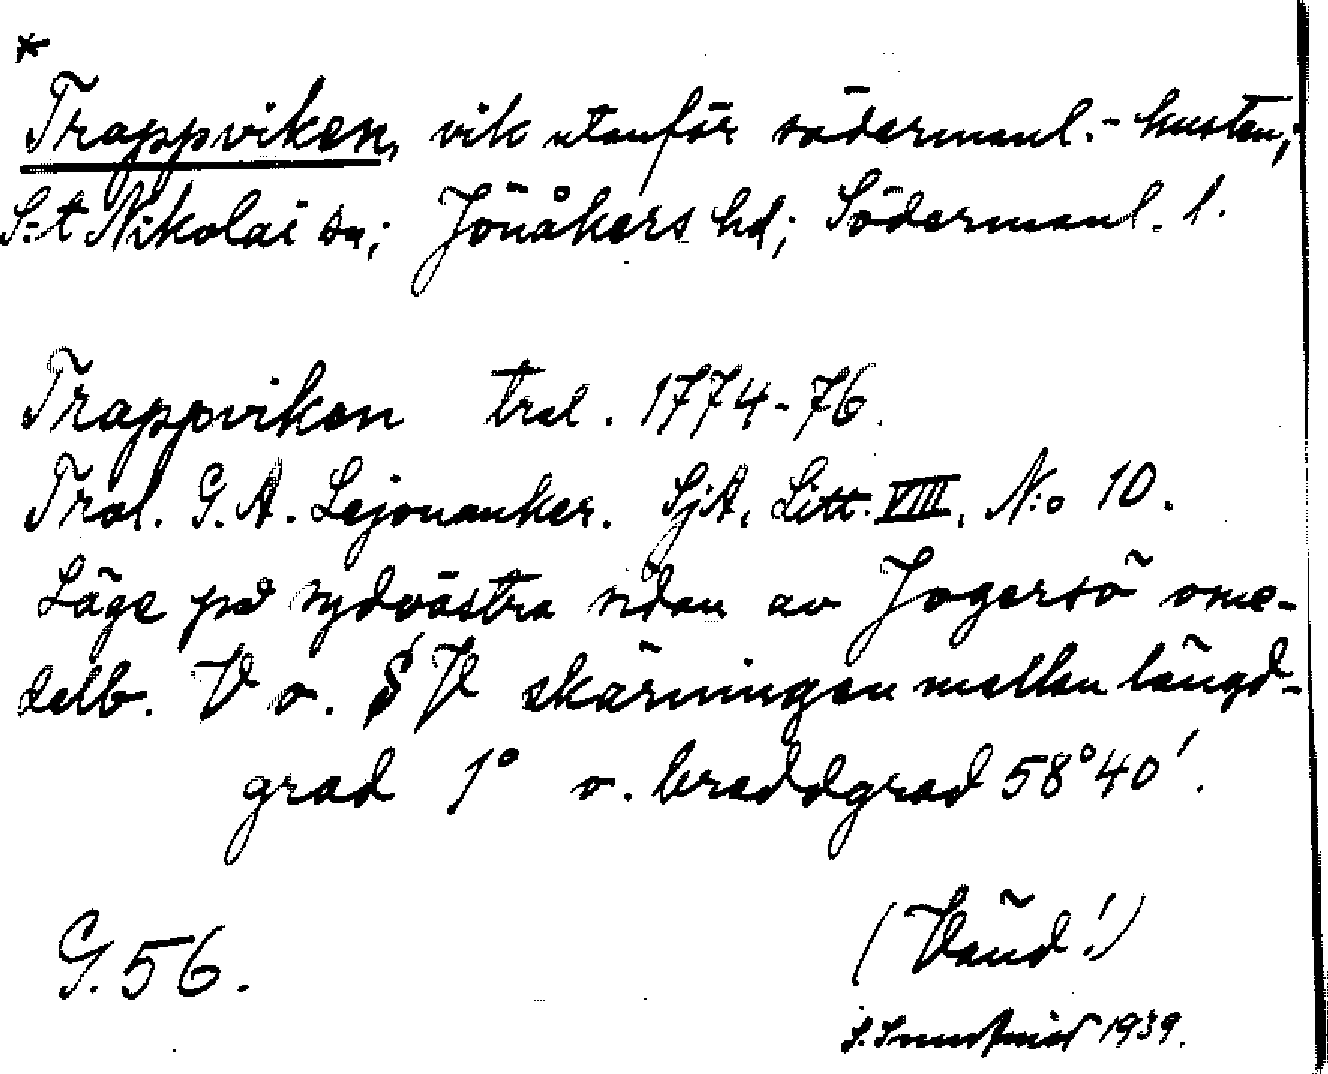 *
Trappviken, vik utanför södermanl.-kusten;
S:t Nikolai sn; Jönåkers hd; Södermanl. l.
Trappviken tral. 1774-76.
Tral. G. A. Lejonanker. SjA, Litt. VIII, N:o 10.
Läge på sydvästra sidan av Jogersö ome-
delb. V o. SV skärningen mellan längd-
grad 1° o. breddgrad 58°40'.
G. 56.
(Vänd!)
1939.